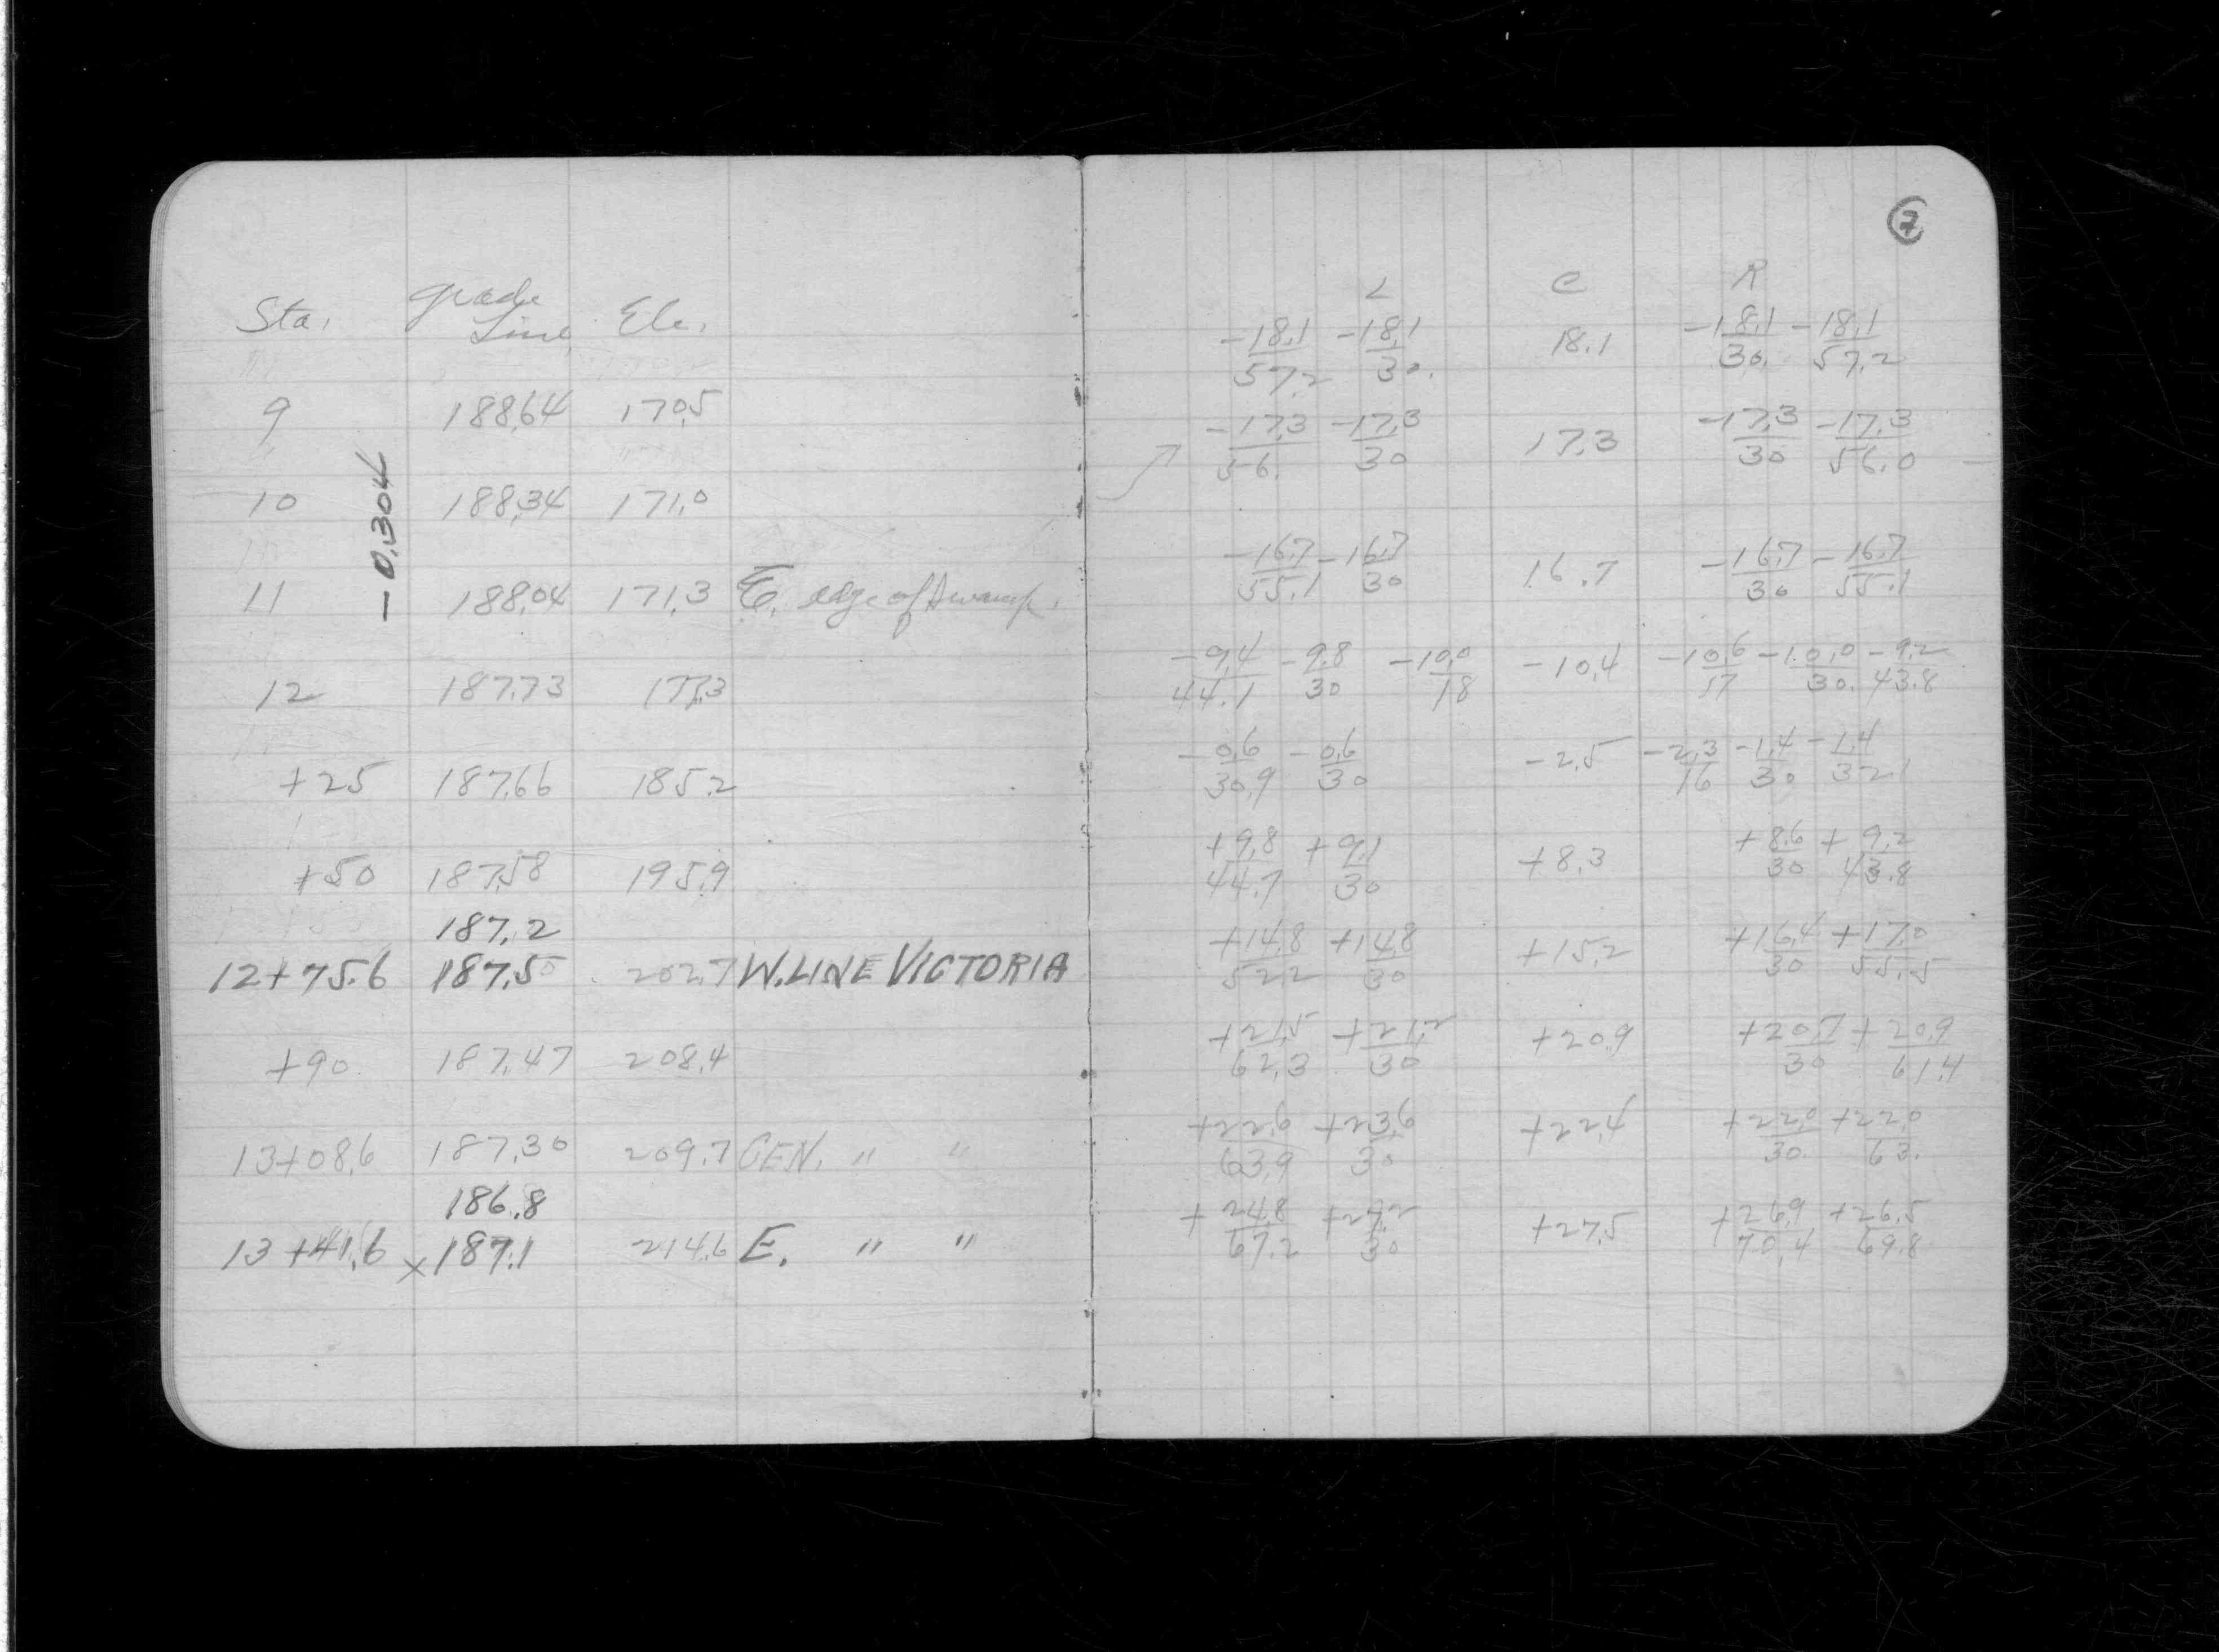 Sta. Grade Line Ele.
9 188.64 170.5
- 0.304
10 188.34 171.0
11 188.04 171.3 E. edge of Swamp.
12 187.73 177.3
+25 187.66 185.2
+50 187.58 195.9
187.2
12+75.6 187.50 202.7 W. LINE VICTORIA
+90 187.47 208.4
13+08.6 187.30 209.7 CEN. " "
186.8
13+41.6 x 187.1 214.6 E. " "
7
L C R
-18.1 -18.1 18.1 -18.1 -18.1
57.2 30. 30. 57.2
-17.3 -17.3 17.3 -17.3 -17.3
56. 30 30 56.0
-16.7 -16.7 16.7 -16.7 -16.7
55.1 30 30 55.1
-9.4 -9.8 -10.0 -10.4 -10.6 -10.0 -9.2
44.1 30 18 17 30. 43.8
-0.6 -0.6 -2.5 -2.3 -1.4 -1.4
30.9 30 16 30 32.1
+9.8 +9.1 +8.3 +8.6 +9.2
44.7 30 30 43.8
+14.8 +14.8 +15.2 +16.4 +17.0
52.2 30 30 55.5
+21.5 +21.2 +20.9 +20.7 +20.9
62.3 30 30 61.4
+22.6 +23.6 +22.4 +22.0 +22.0
63.9 30 30. 63.
+24.8 +27.5 +26.9 +26.5
67.2 30 70.4 69.8